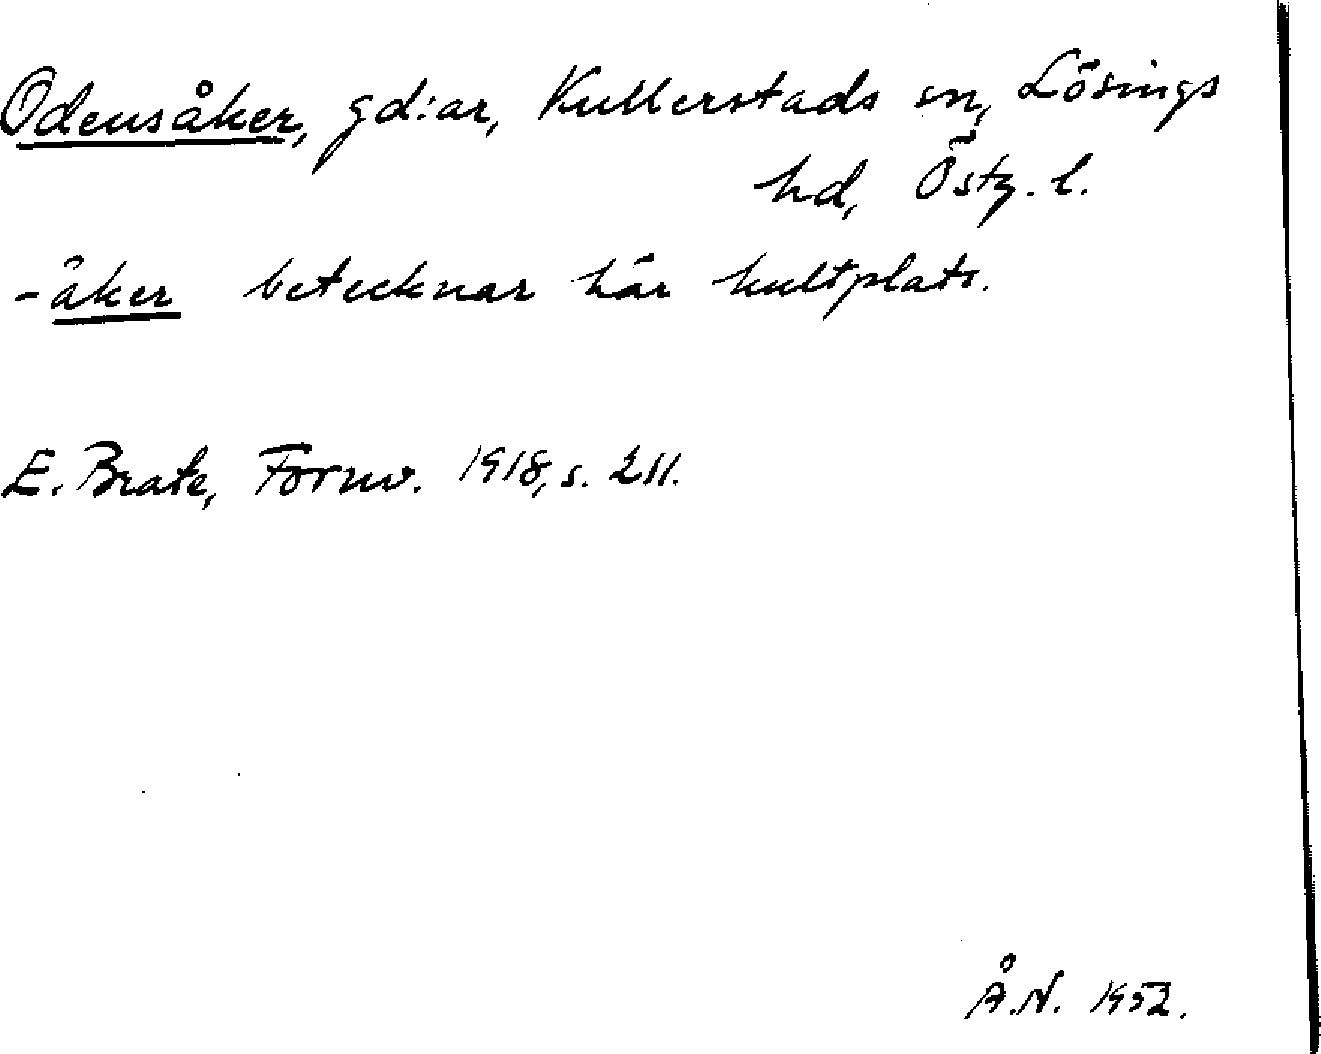 Odensåker, gd:ar, Kullerstads sn, Lösings
hd, Östg. l.
-åker betecknar här kultplats.
E. Brate, Fornv. 1918, s. 211.
Å.N. 1952.